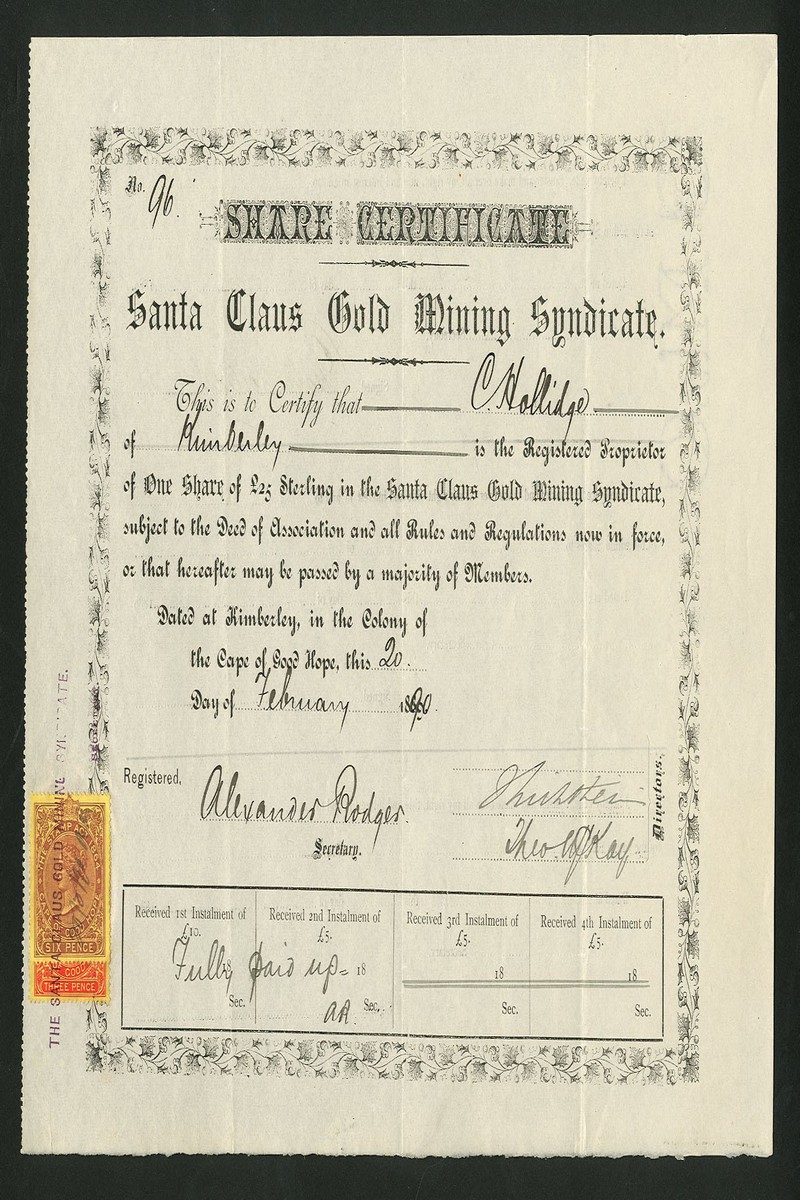 No. 96.
SHARE CERTIFICATE
Santa Claus Gold Mining Syndicate.
This is to Certify that C. Hollidge
of Kimberley is the Registered Proprietor
of One Share of £25 Sterling in the Santa Claus Gold Mining Syndicate,
subject to the Deed of Association and all Rules and Regulations now in force,
or that hereafter may be passed by a majority of Members.
Dated at Kimberley, in the Colony of
the Cape of Good Hope, this 20.
Day of February 1890.
Registered,
Alexander Rodger.
Secretary.
Theo. Kay
Directors.
Received 1st Instalment of £10. 18 Sec.
Received 2nd Instalment of £5. 18 Sec.
Fully paid up
AR.
Received 3rd Instalment of £5. 18 Sec.
Received 4th Instalment of £5. 18 Sec.
SIX PENCE
GOOD
THREE PENCE
THE SANTA CLAUS GOLD MINING SYNDICATE.